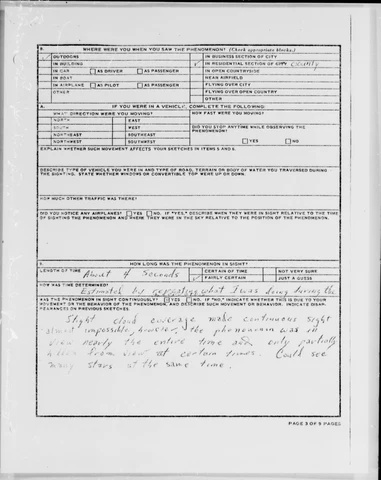 8. WHERE WERE YOU WHEN YOU SAW THE PHENOMENON? (Check appropriate blocks.)
✓ OUTDOORS IN BUSINESS SECTION OF CITY
IN BUILDING ✓ IN RESIDENTIAL SECTION OF CITY County
IN CAR AS DRIVER AS PASSENGER IN OPEN COUNTRYSIDE
IN BOAT NEAR AIRFIELD
IN AIRPLANE AS PILOT AS PASSENGER FLYING OVER CITY
OTHER FLYING OVER OPEN COUNTRY
OTHER
A. IF YOU WERE IN A VEHICLE, COMPLETE THE FOLLOWING:
WHAT DIRECTION WERE YOU MOVING? HOW FAST WERE YOU MOVING?
NORTH EAST
SOUTH WEST DID YOU STOP ANYTIME WHILE OBSERVING THE PHENOMENON?
NORTHEAST SOUTHEAST
NORTHWEST SOUTHWEST YES NO
EXPLAIN WHETHER SUCH MOVEMENT AFFECTS YOUR SKETCHES IN ITEMS 5 AND 6.
DESCRIBE TYPE OF VEHICLE YOU WERE IN AND TYPE OF ROAD, TERRAIN OR BODY OF WATER YOU TRAVERSED DURING
THE SIGHTING. STATE WHETHER WINDOWS OR CONVERTIBLE TOP WERE UP OR DOWN.
HOW MUCH OTHER TRAFFIC WAS THERE?
DID YOU NOTICE ANY AIRPLANES? YES NO. IF "YES," DESCRIBE WHEN THEY WERE IN SIGHT RELATIVE TO THE TIME
OF SIGHTING THE PHENOMENON AND WHERE THEY WERE IN THE SKY RELATIVE TO THE POSITION OF THE PHENOMENON.
HOW LONG WAS THE PHENOMENON IN SIGHT?
LENGTH OF TIME About 4 Seconds CERTAIN OF TIME NOT VERY SURE
✓ FAIRLY CERTAIN JUST A GUESS
HOW WAS TIME DETERMINED?
Estimated by repeating what I was doing during the
WAS THE PHENOMENON IN SIGHT CONTINUOUSLY? YES NO. IF "NO," INDICATE WHETHER THIS IS DUE TO YOUR
MOVEMENT OR THE BEHAVIOR OF THE PHENOMENON, AND DESCRIBE SUCH MOVEMENT OR BEHAVIOR. INDICATE DISAP-
PEARANCES ON PREVIOUS SKETCHES.
Slight cloud coverage made continuous sight
almost impossible, however, the phenomenon was in
view nearly the entire time and only partially
hidden from view at certain times. Could see
many stars at the same time.
PAGE 3 OF 9 PAGES